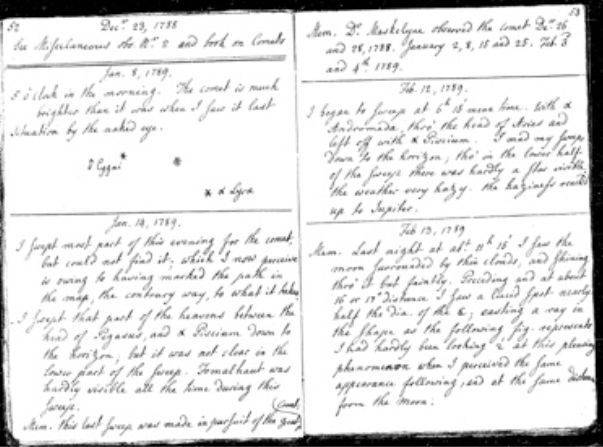 52
Decr 23, 1788
See Miscellaneous obs No. 2 and book on Comets
Jan. 8, 1789.
5 o'clock in the morning. The comet is much
brighter than it was when I saw it last
Situation by the naked eye.
* α Lyræ
Jan. 14, 1789.
I swept most part of this evening for the comet,
but could not find it; which I now perceive
is owing to having marked the path in
the map, the contrary way, to what it takes.
I swept that part of the heavens between the
head of Pegasus, and α Piscium down to
the horizon; but it was not clear in the
lower part of the sweep. Fomalhaut was
hardly visible all the time during this
sweep.
Mem. this last sweep was made in pursuit of the great
Comet
53
Mem. Dr Maskelyne observed the comet Decr 26
and 28, 1788. January 2, 8, 15 and 25. Feb. 3
and 4th 1789.
Feb. 12, 1789.
I began to sweep at 6h 15' mean time. With α
Andromada, thro' the head of Aries and
left off with α Piscium. I mad my sweeps
down to the horizon, tho' in the lower half
of the sweeps there was hardly a star visible,
the weather very hazy. the haziness
up to Jupiter.
Feb 13, 1789
Mem. Last night at abt 11h 15' I saw the
moon surrounded by thin clouds, and shining
thro' it but faintly. Preceding and at about
distance I saw a lucid spot nearly
half the dia. of the ☾; casting a ray in
the shape as the following fig. represents
I had hardly been looking at this pleasing
phenomenon when I perceived the same
appearance following, and at the same distance
from the moon.